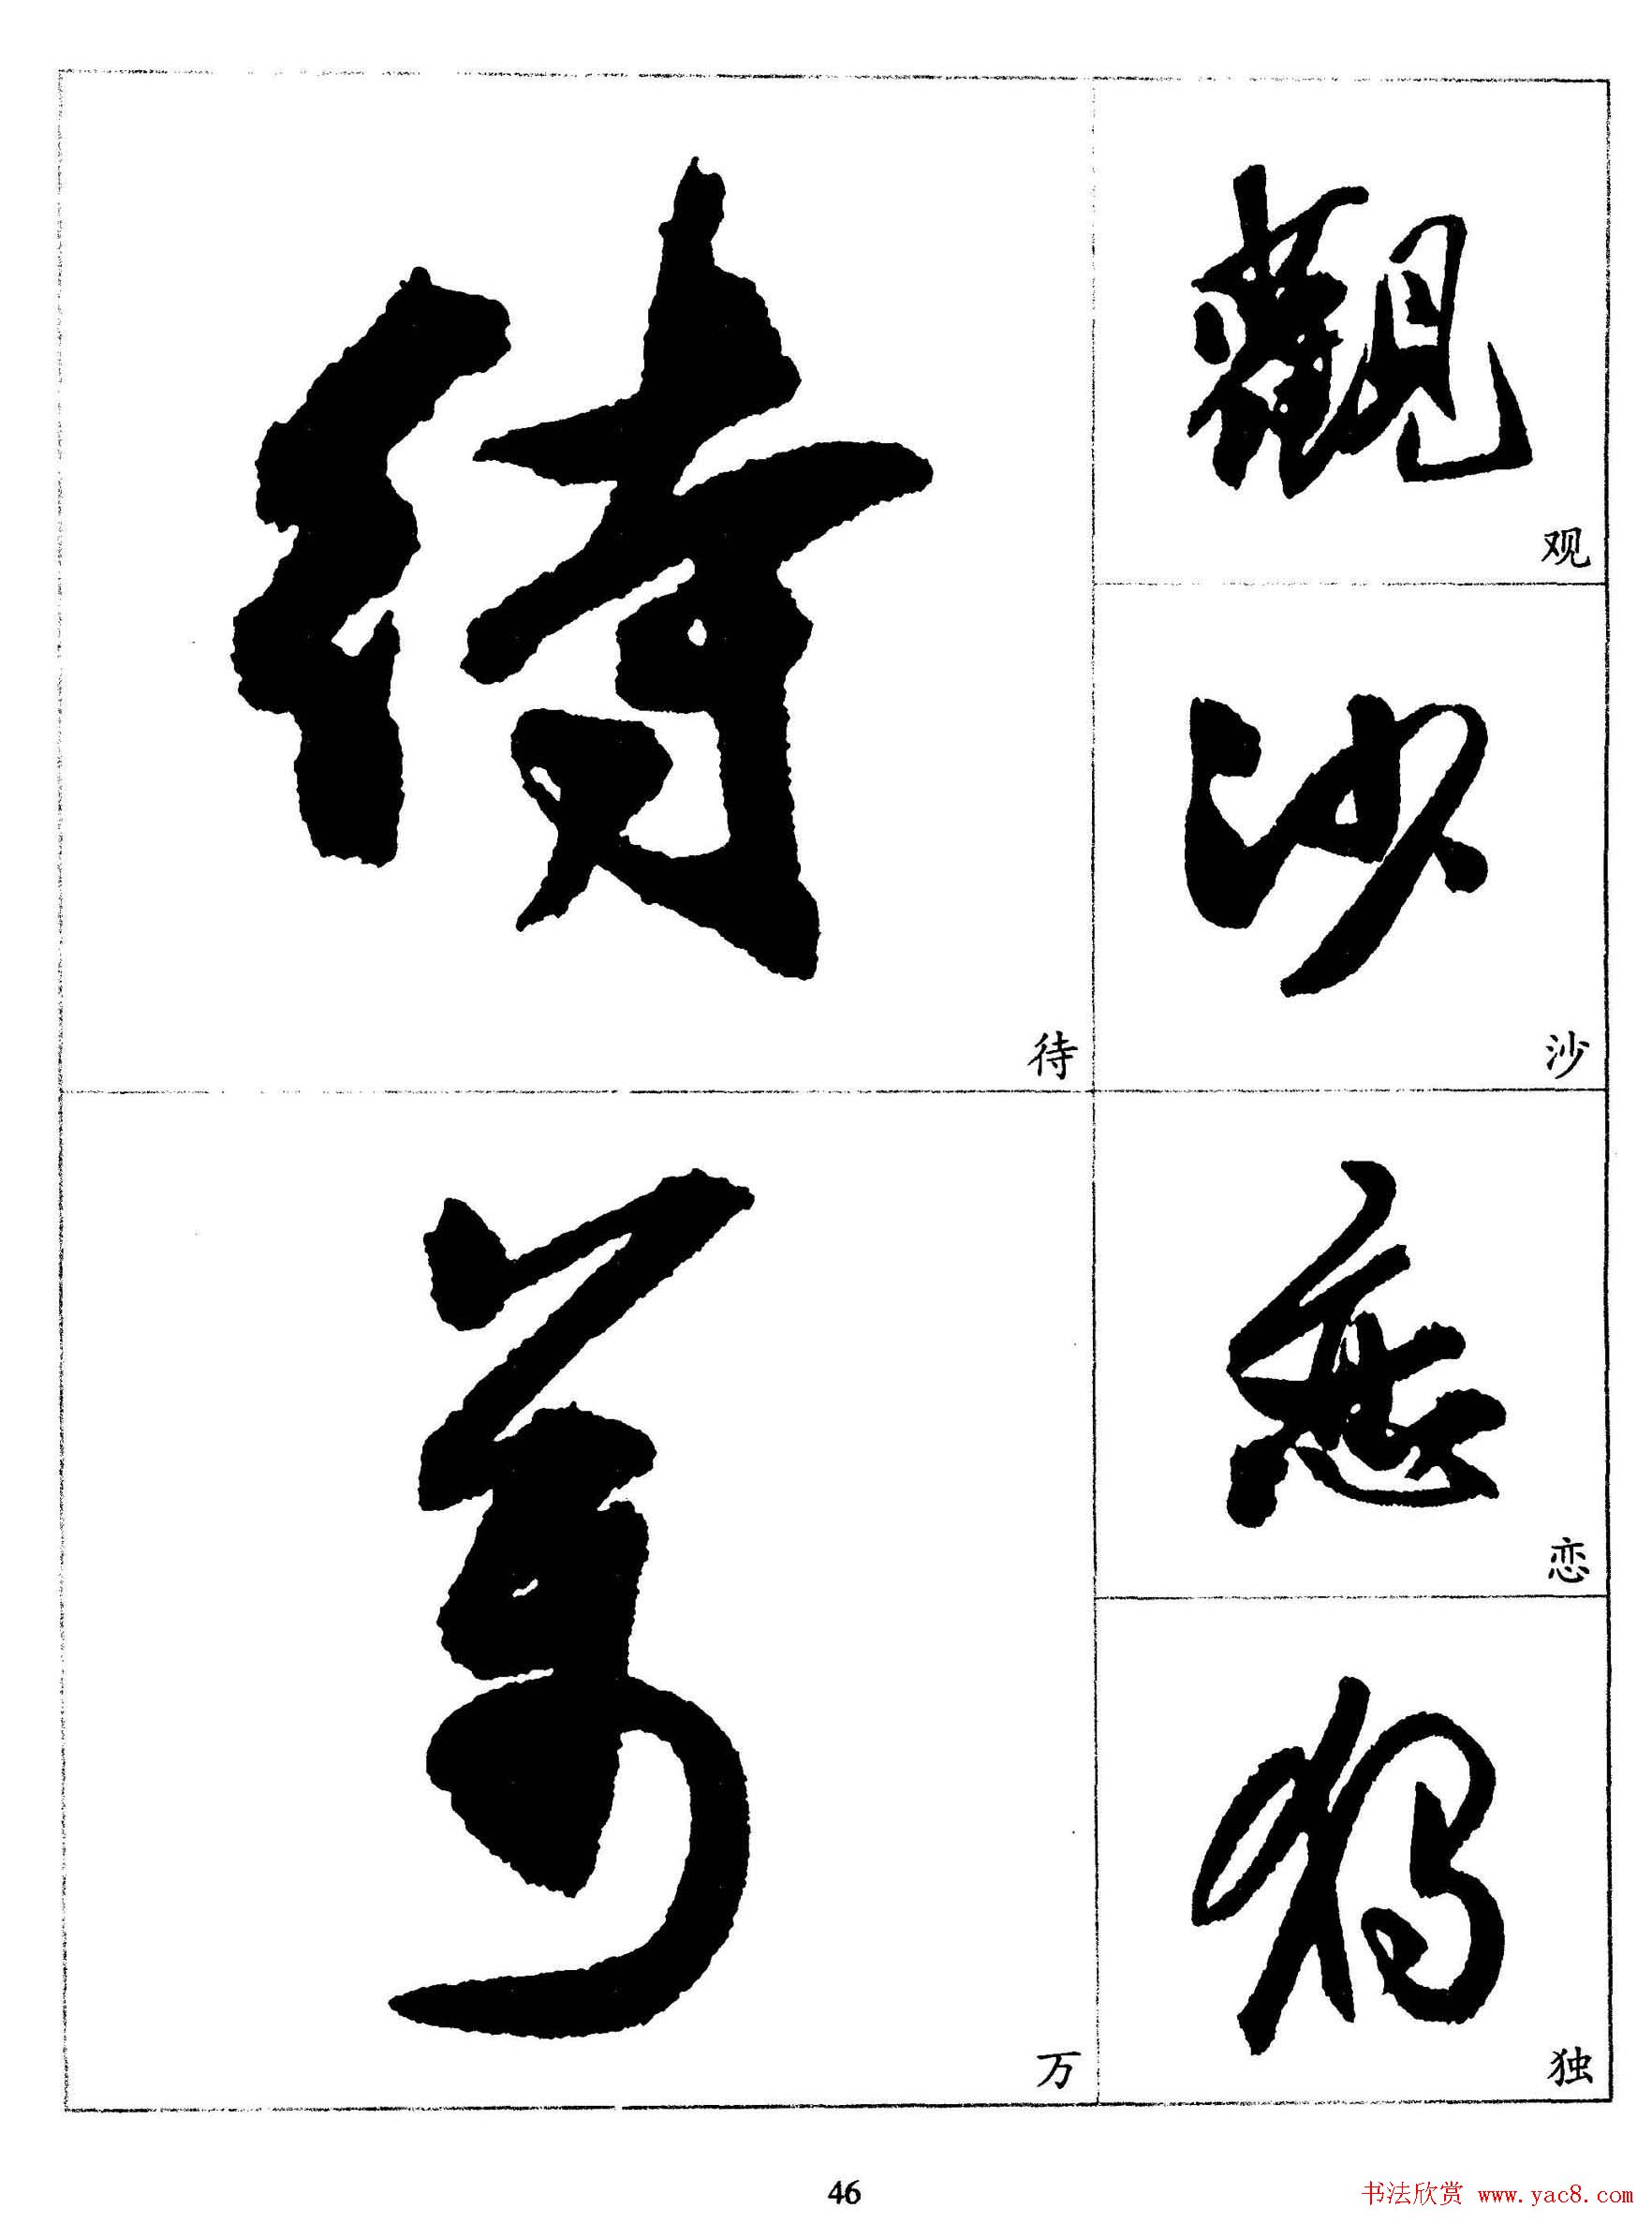 觀
观
沙
沙
戀
恋
獨
独
待
待
萬
万
46
书法欣赏 www.yac8.com